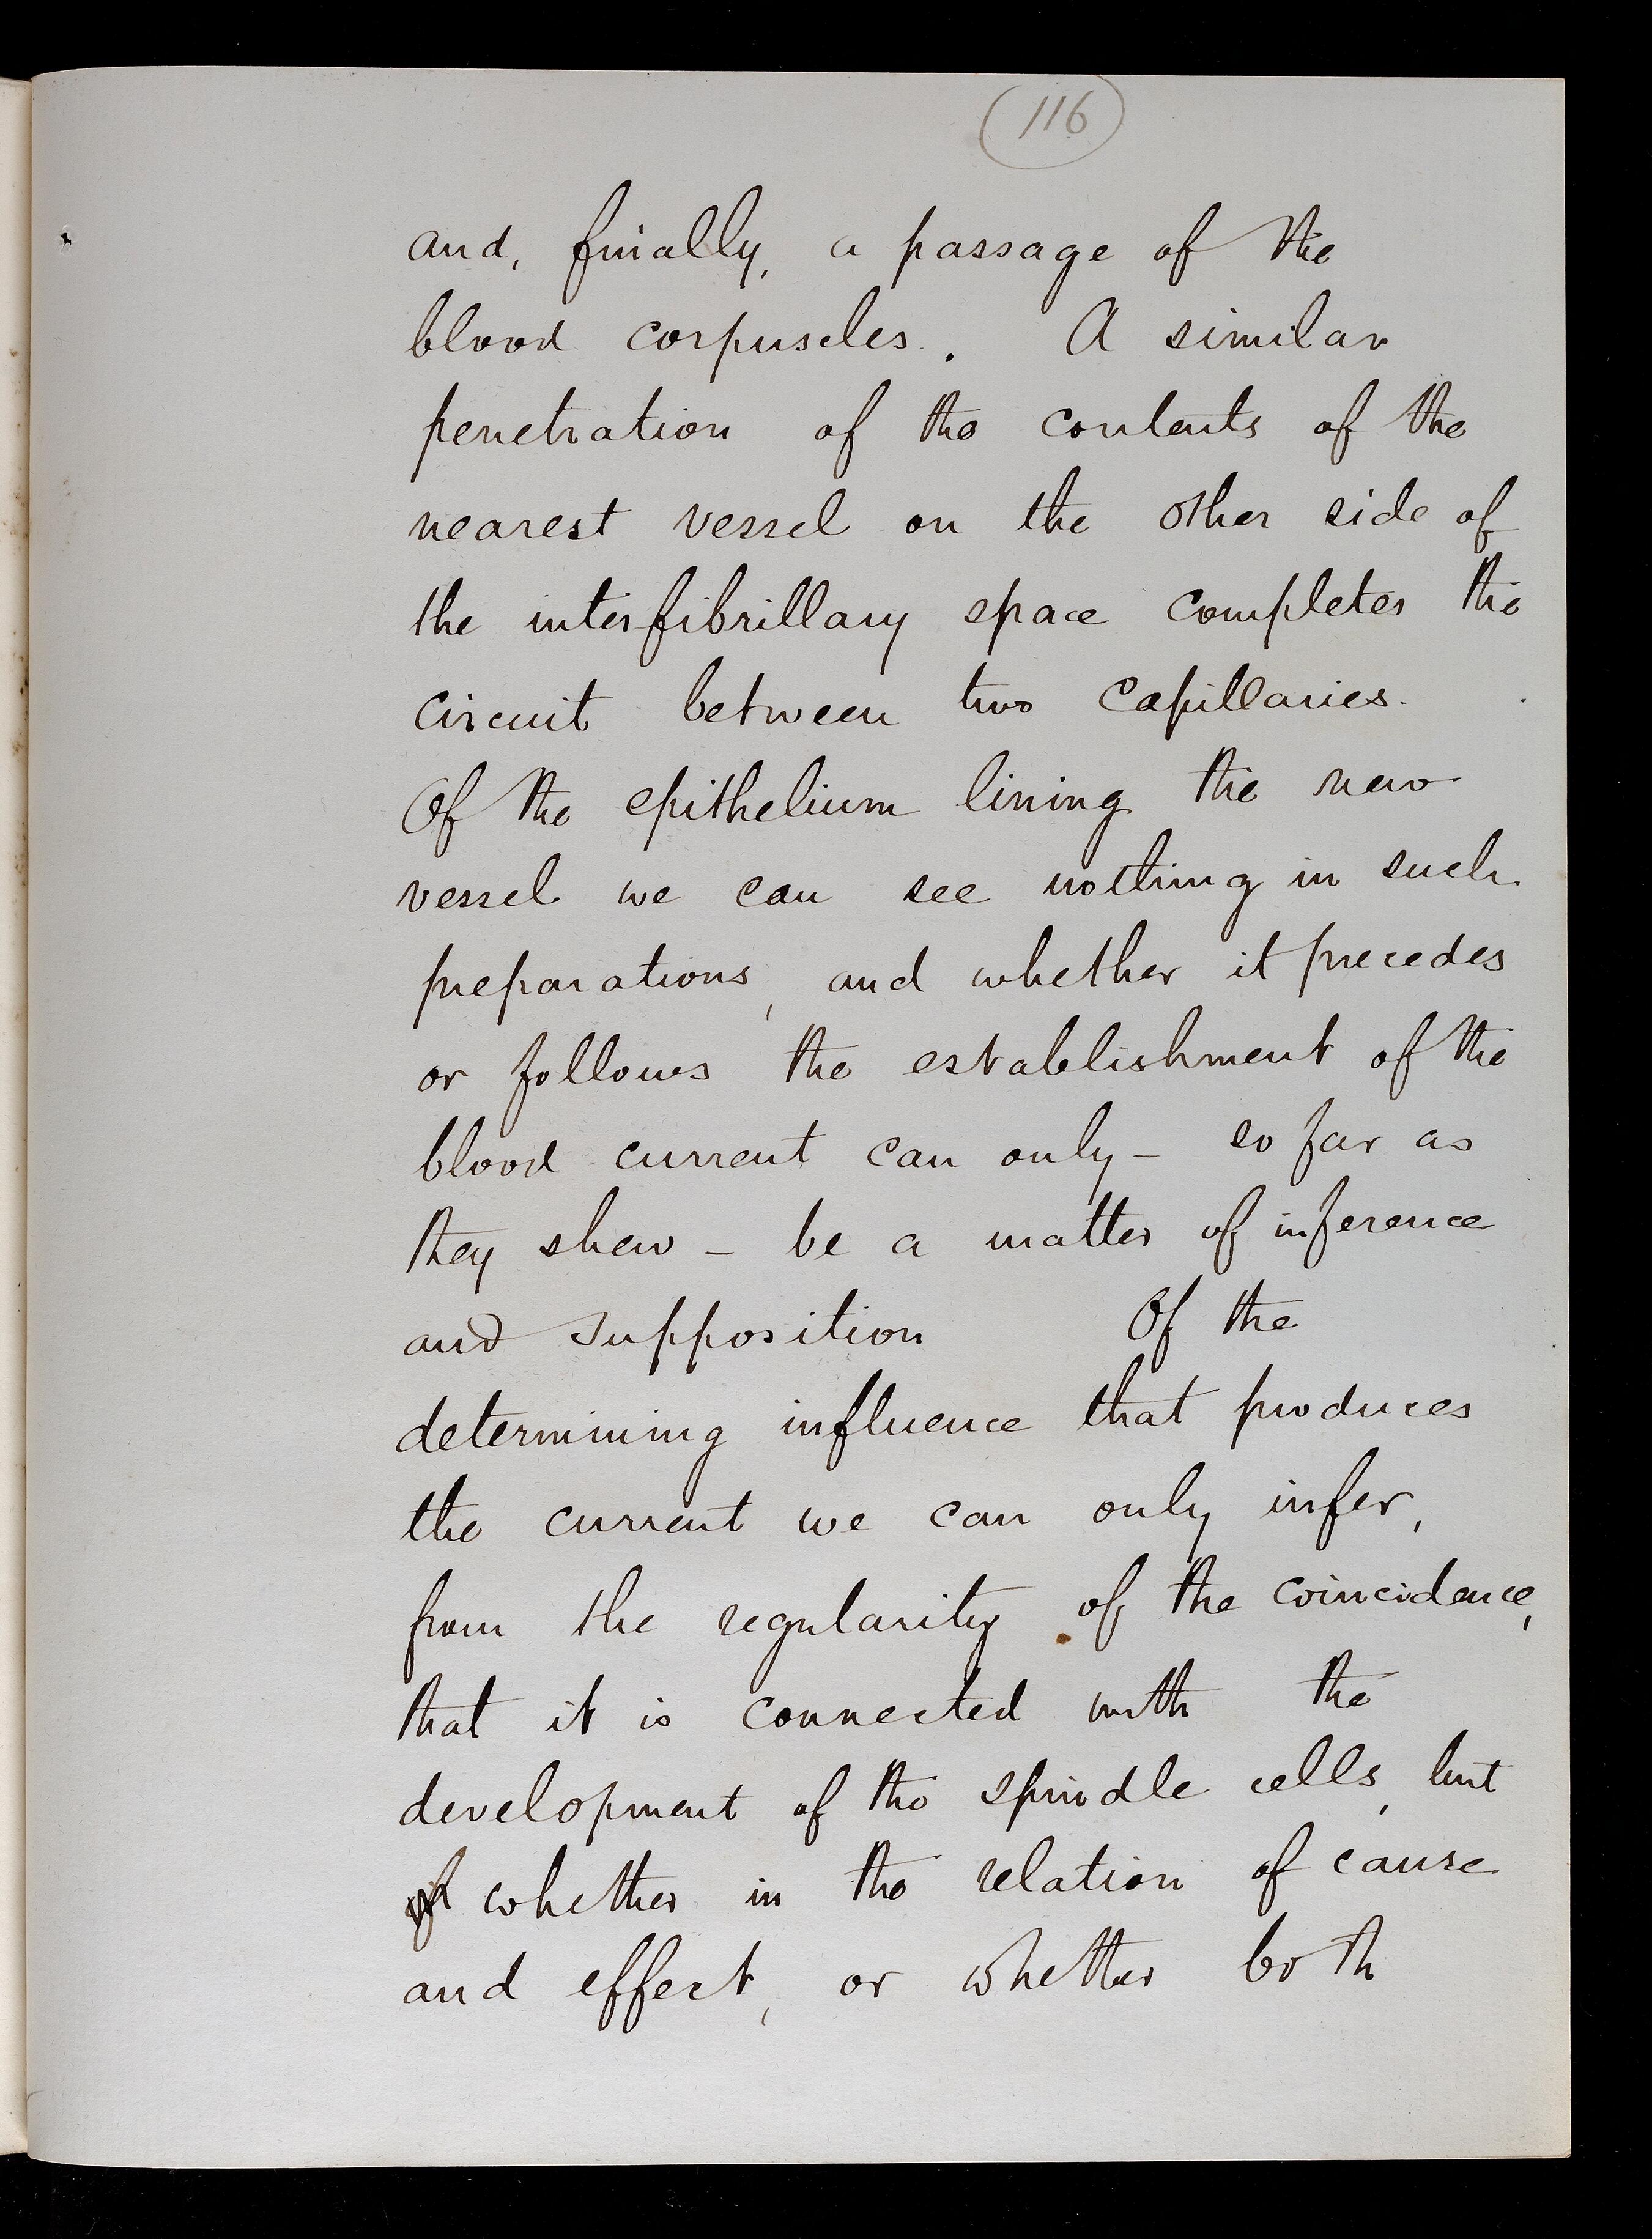 116
and, finally, a passage of the
blood corpuscles. A similar
penetration of the contents of the
nearest vessel on the other side of
the interfibrillary space completes the
circuit between two capillaries.
Of the epithelium lining the new
vessel we can see nothing in such
preparations, and whether it precedes
or follows the establishment of the
blood current can only – so far as
they shew – be a matter of inference
and supposition Of the
determining influence that produces
the current we can only infer,
from the regularity of the coincidence,
that it is connected with the
development of the spindle cells, but
whether in the relation of cause
and effect, or whether both